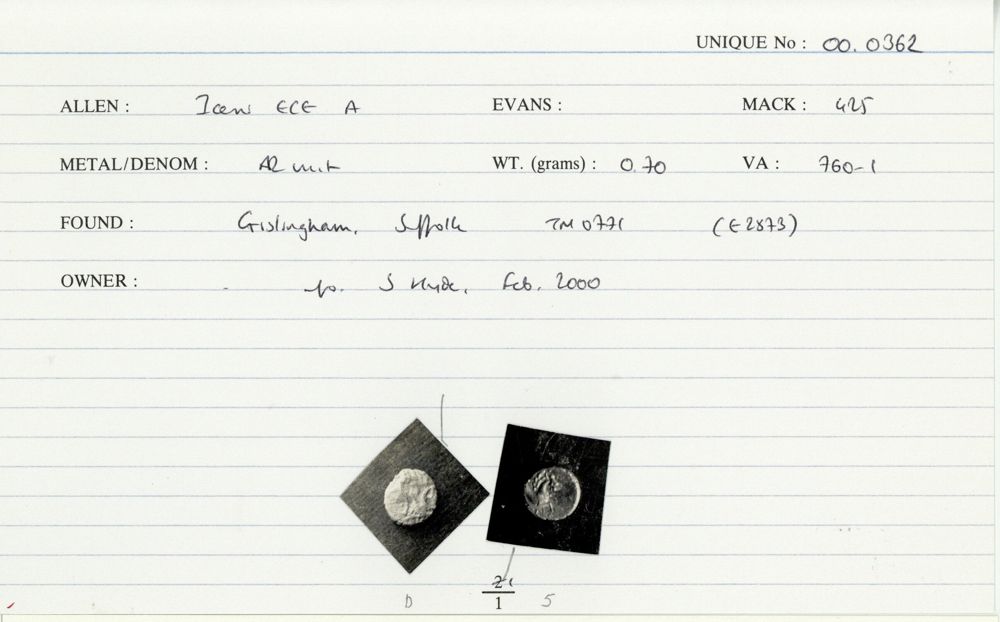 UNIQUE No : 00.0362
ALLEN : Iceni ECE A EVANS : MACK : 425
METAL/DENOM : AR unit WT. (grams) : 0.70 VA : 760-1
FOUND : Gislingham, Suffolk TM 0771 (E2873)
OWNER : S Hyde, Feb. 2000
1
D S